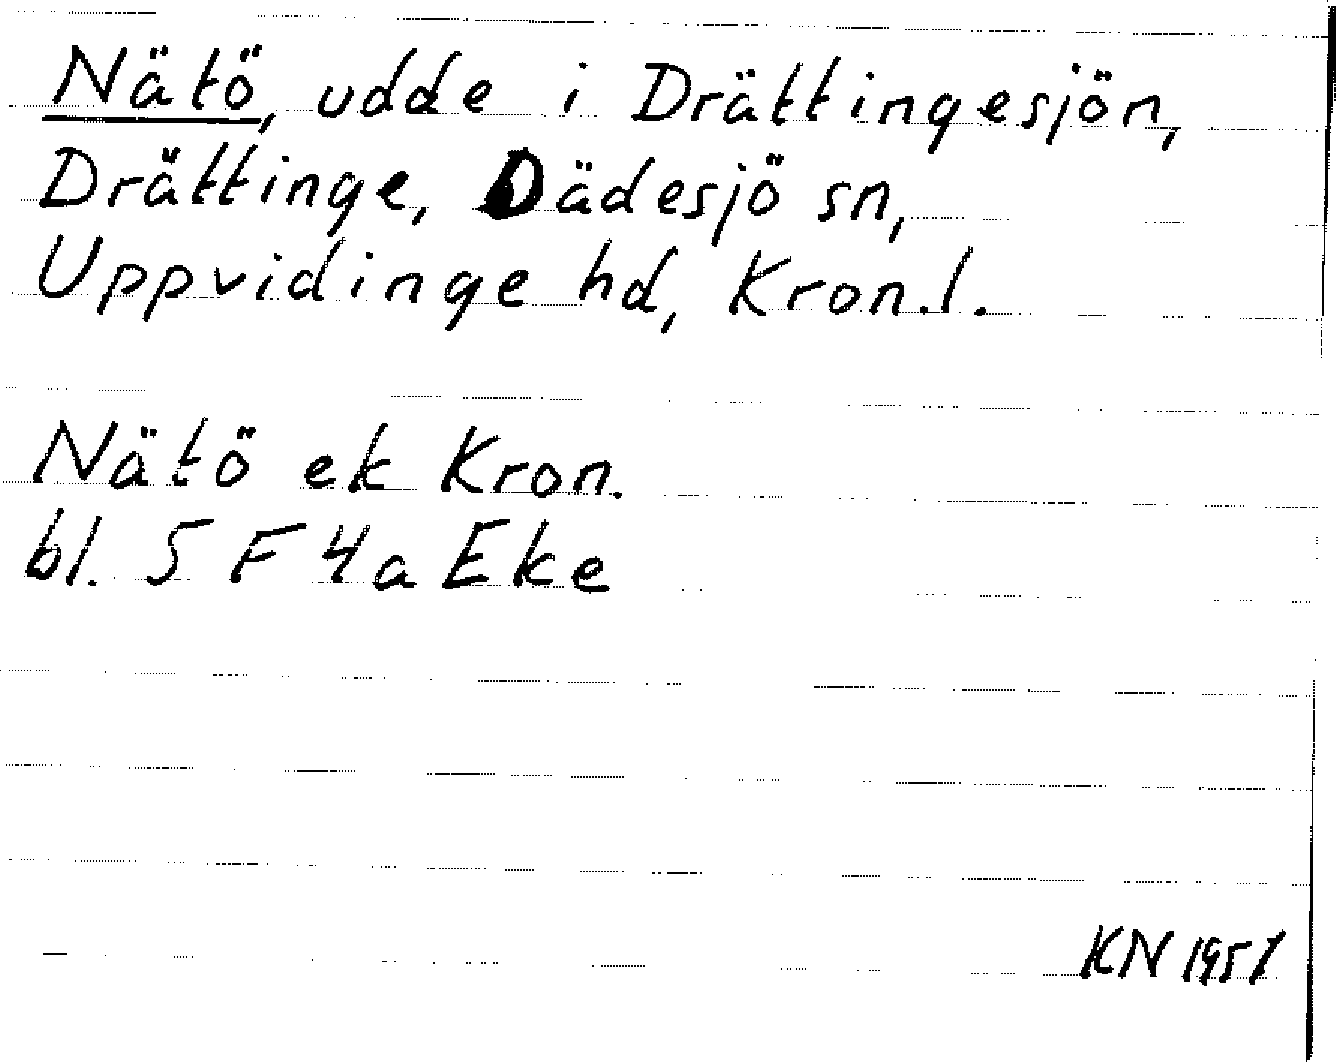 Nätö, udde i Drättingesjön,
Drättinge, Dädesjö sn,
Uppvidinge hd, Kron.l.
Nätö ek Kron.
bl. 5 F 4a Eke
KN 1951